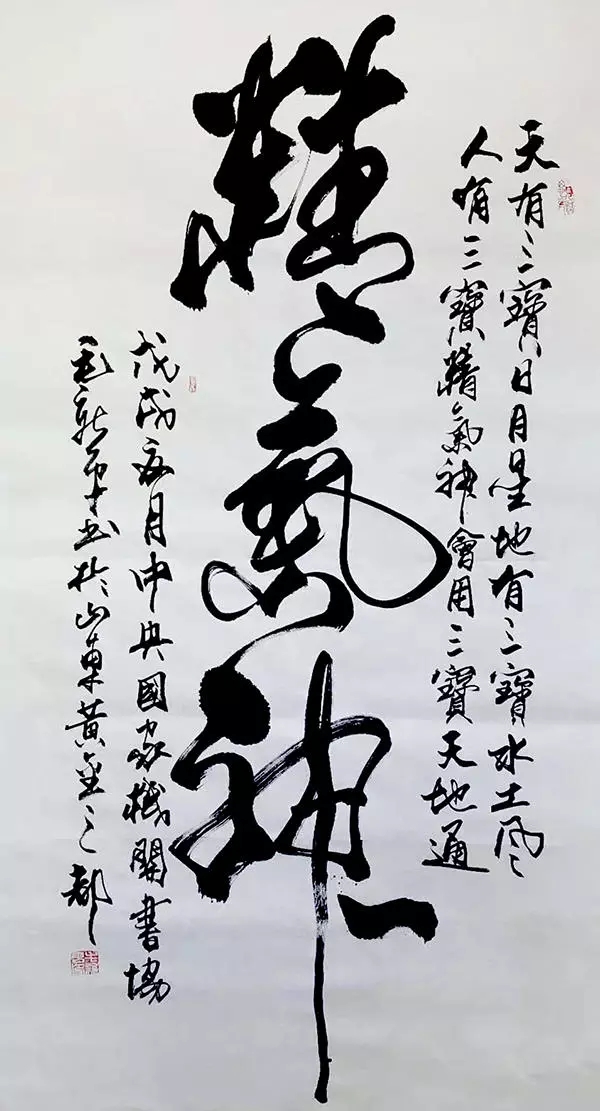 天有三寶日月星地有三寶水土風
人有三寶精氣神會用三寶天地通
精氣神
戊戌夏月中央國家機關書協
書於山東黃金之都